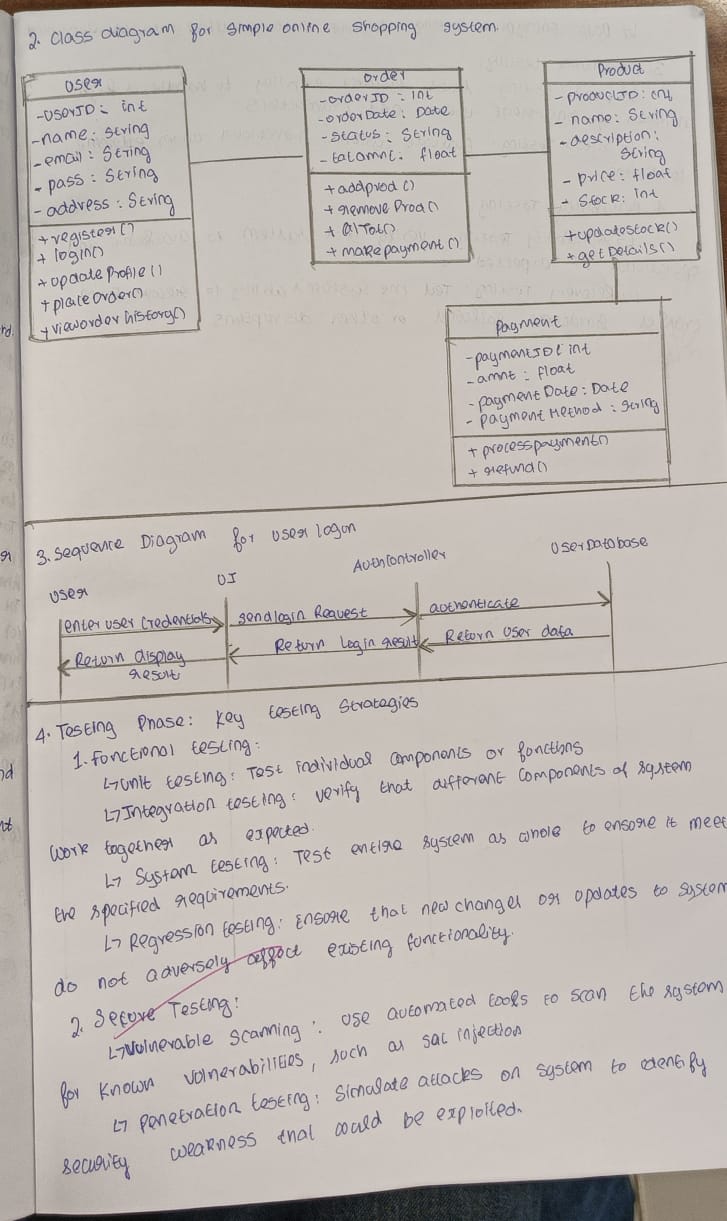 2. Class diagram for simple online shopping system.
User
-UserID: int
-name: string
-email: String
- pass: String
- address: String
+ register()
+ login()
+ update Profile()
+ place Order()
+ vieworder history()
order
-orderID: int
-orderDate: Date
-status: String
- totamnt: float
+ addprod()
+ remove Prod()
+ makepayment()
Product
- productID: int
- name: String
-description:
String
- price: float
- Stock: int
+updateStock()
+ getDetails()
Payment
-paymentID: int
-amnt: float
-paymentDate: Date
- payment Method: String
+ processpayment()
+ refund()
3. Sequence Diagram for user logon
User
UI
AuthController
UserDatabase
enter user credentials
send login Request
authenticate
Return display
result
Return Login result
Return User data
4. Testing Phase: Key testing Strategies
1. Functional testing:
↳ Unit testing: Test individual components or functions
↳ Integration testing: verify that different components of system
work together as expected.
↳ System testing: Test entire system as whole to ensure it meet
the specified requirements.
↳ Regression testing: Ensure that new changes or updates to system
do not adversely affect existing functionality.
2. Secure Testing:
↳ Vulnerable Scanning: use automated tools to scan the system
for known vulnerabilities, such as sql injection
↳ Penetration testing: Simulate attacks on system to identify
security weakness that could be exploited.